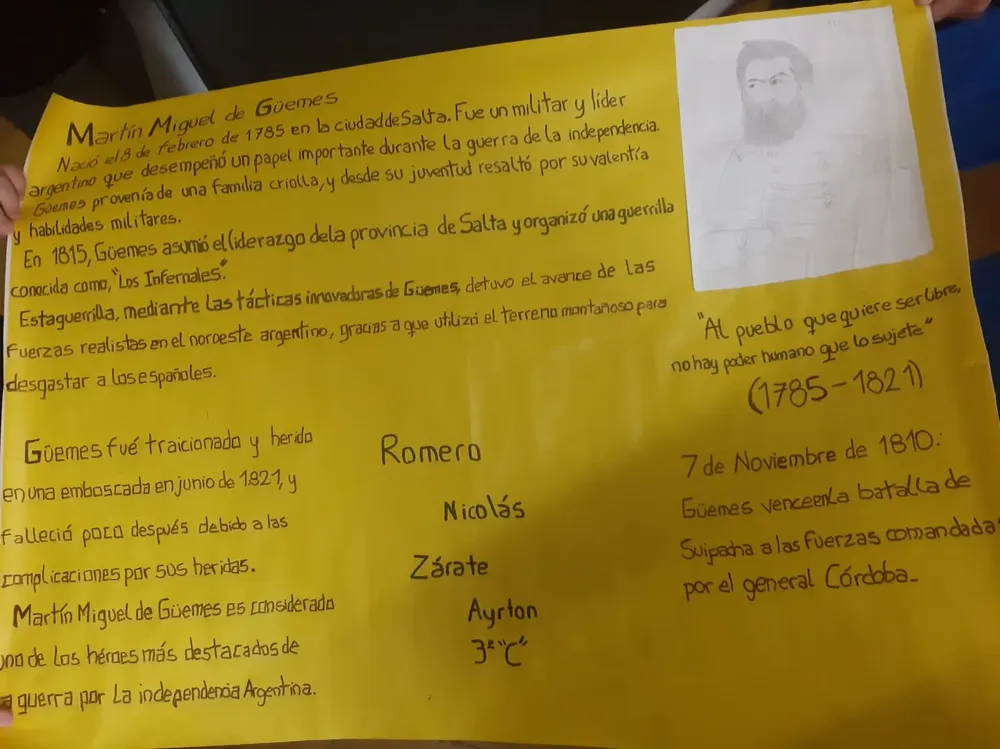 Martín Miguel de Güemes
Nació el 8 de febrero de 1785 en la ciudad de Salta. Fue un militar y líder
argentino que desempeñó un papel importante durante la guerra de la independencia.
Güemes provenía de una familia criolla, y desde su juventud resaltó por su valentía
y habilidades militares.
En 1815, Güemes asumió el liderazgo dela provincia de Salta y organizó una guerrilla
conocida como, "Los Infernales."
Esta guerrilla, mediante las tácticas innovadoras de Güemes, detuvo el avance de las
fuerzas realistas en el noroeste argentino, gracias a que utilizó el terreno montañoso para
desgastar a los españoles.
"Al pueblo que quiere ser libre,
no hay poder humano que lo sujete"
(1785-1821)
Güemes fué traicionado y herido
en una emboscada en junio de 1.821, y
falleció poco después debido a las
complicaciones por sus heridas.
Martín Miguel de Güemes es considerado
uno de los héroes más destacados de
a guerra por La independencia Argentina.
Romero
Nicolás
Zárate
Ayrton
3º "C"
7 de Noviembre de 1810:
Güemes vence en la batalla de
Suipacha a las fuerzas comandada
por el general Córdoba_